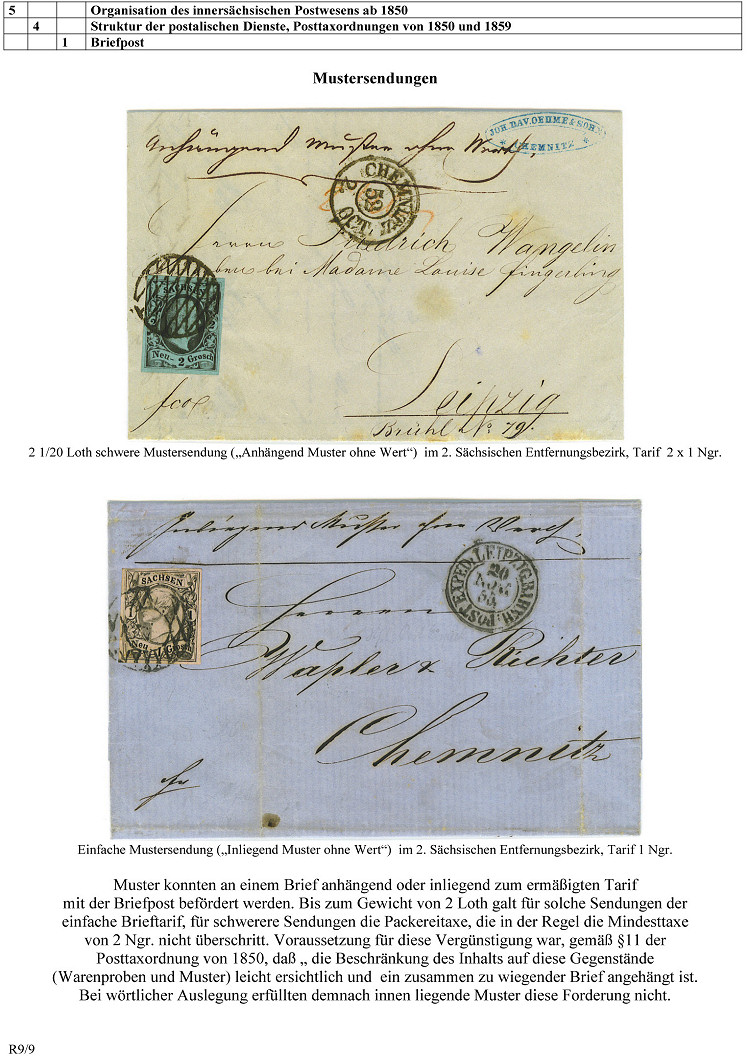 5 Organisation des innersächsischen Postwesens ab 1850
4 Struktur der postalischen Dienste, Posttaxordnungen von 1850 und 1859
1 Briefpost
Mustersendungen
JOH. DAV. OEHME & SOHN
CHEMNITZ
Anhängend Muster ohne Werth,
CHEMNITZ
2 OCT. 52
Herrn Friedrich Wangelin
bei Madame Louise Fingerling
SACHSEN
Neu- 2 Grosch
Leipzig
fco
Brühl No 79.
2 1/20 Loth schwere Mustersendung („Anhängend Muster ohne Wert“)  im 2. Sächsischen Entfernungsbezirk, Tarif  2 x 1 Ngr.
Inliegend Muster ohne Werth,
SACHSEN
1 1
Neu- 1 Grosch
POST EXPED: LEIPZIG: BAHNH:
20
NOV
Herren
Wapler & Richter
Chemnitz
Einfache Mustersendung („Inliegend Muster ohne Wert“)  im 2. Sächsischen Entfernungsbezirk, Tarif 1 Ngr.
Muster konnten an einem Brief anhängend oder inliegend zum ermäßigten Tarif
mit der Briefpost befördert werden. Bis zum Gewicht von 2 Loth galt für solche Sendungen der
einfache Brieftarif, für schwerere Sendungen die Packereitaxe, die in der Regel die Mindesttaxe
von 2 Ngr. nicht überschritt. Voraussetzung für diese Vergünstigung war, gemäß §11 der
Posttaxordnung von 1850, daß „ die Beschränkung des Inhalts auf diese Gegenstände
(Warenproben und Muster) leicht ersichtlich und  ein zusammen zu wiegender Brief angehängt ist.
Bei wörtlicher Auslegung erfüllten demnach innen liegende Muster diese Forderung nicht.
R9/9